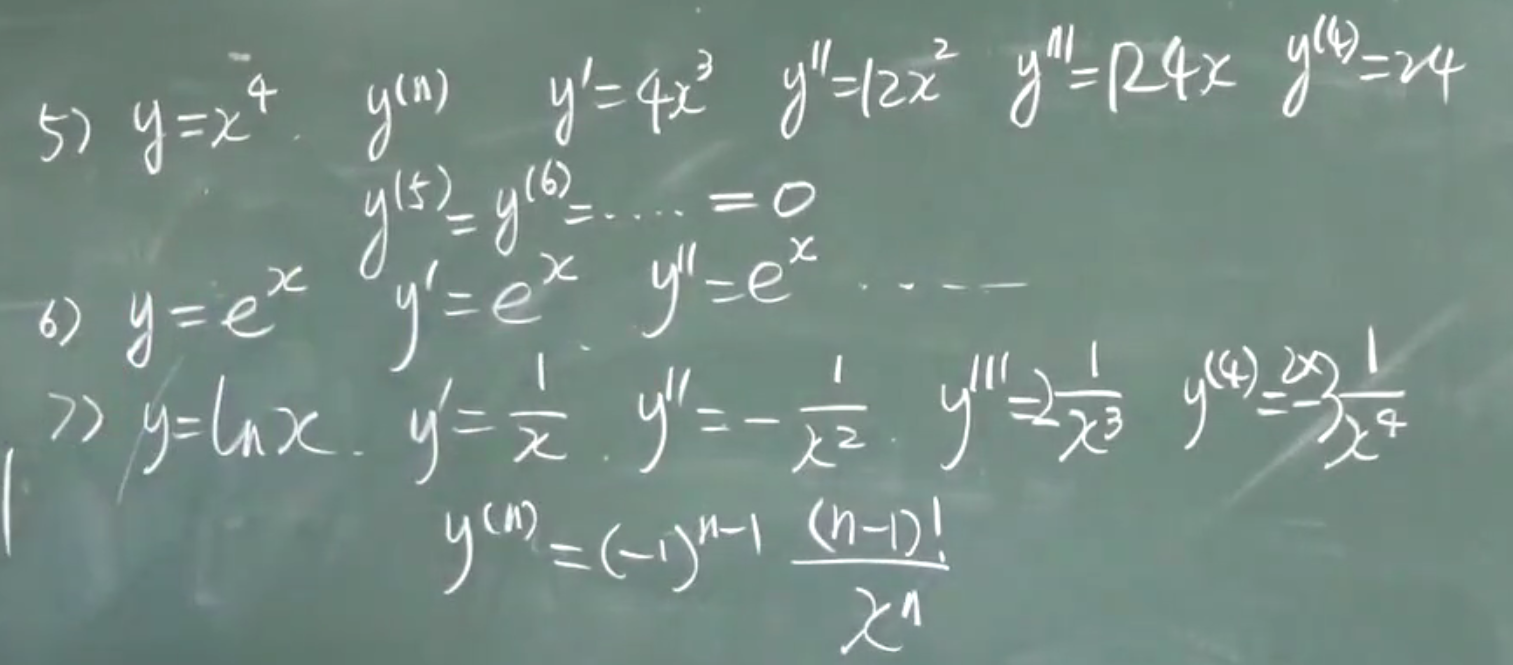 5) y=x⁴. y⁽ⁿ⁾ y'=4x³ y''=12x² y'''=24x y⁽⁴⁾=24
y⁽⁵⁾=y⁽⁶⁾=..... =0
6) y=eˣ y'=eˣ y''=eˣ ......
7) y=lnx. y'=1/x. y''=-1/x². y'''=2 1/x³ y⁽⁴⁾=-2×3 1/x⁴
y⁽ⁿ⁾=(-1)ⁿ⁻¹ (n-1)!/xⁿ